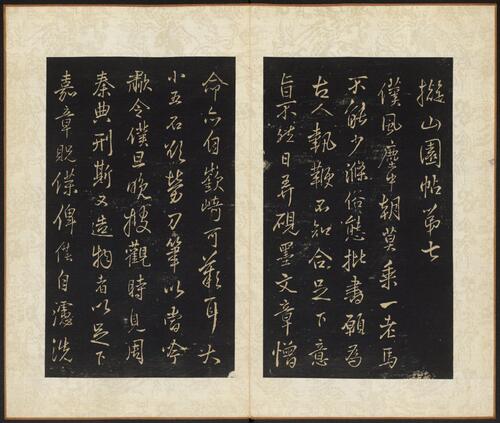 擬山園帖第七
僕風塵中朝莫乘一老馬
不能少滌俗態批書願為
古人執鞭不知合足下意
不然日弄硯墨文章憎
命亦自嶔崎可歎耳大
小五石頒勞刀筆以當吟
令僕旦晚披觀時見周
秦典刑斯又造物者以足下
嘉章貺僕俾僕自洗